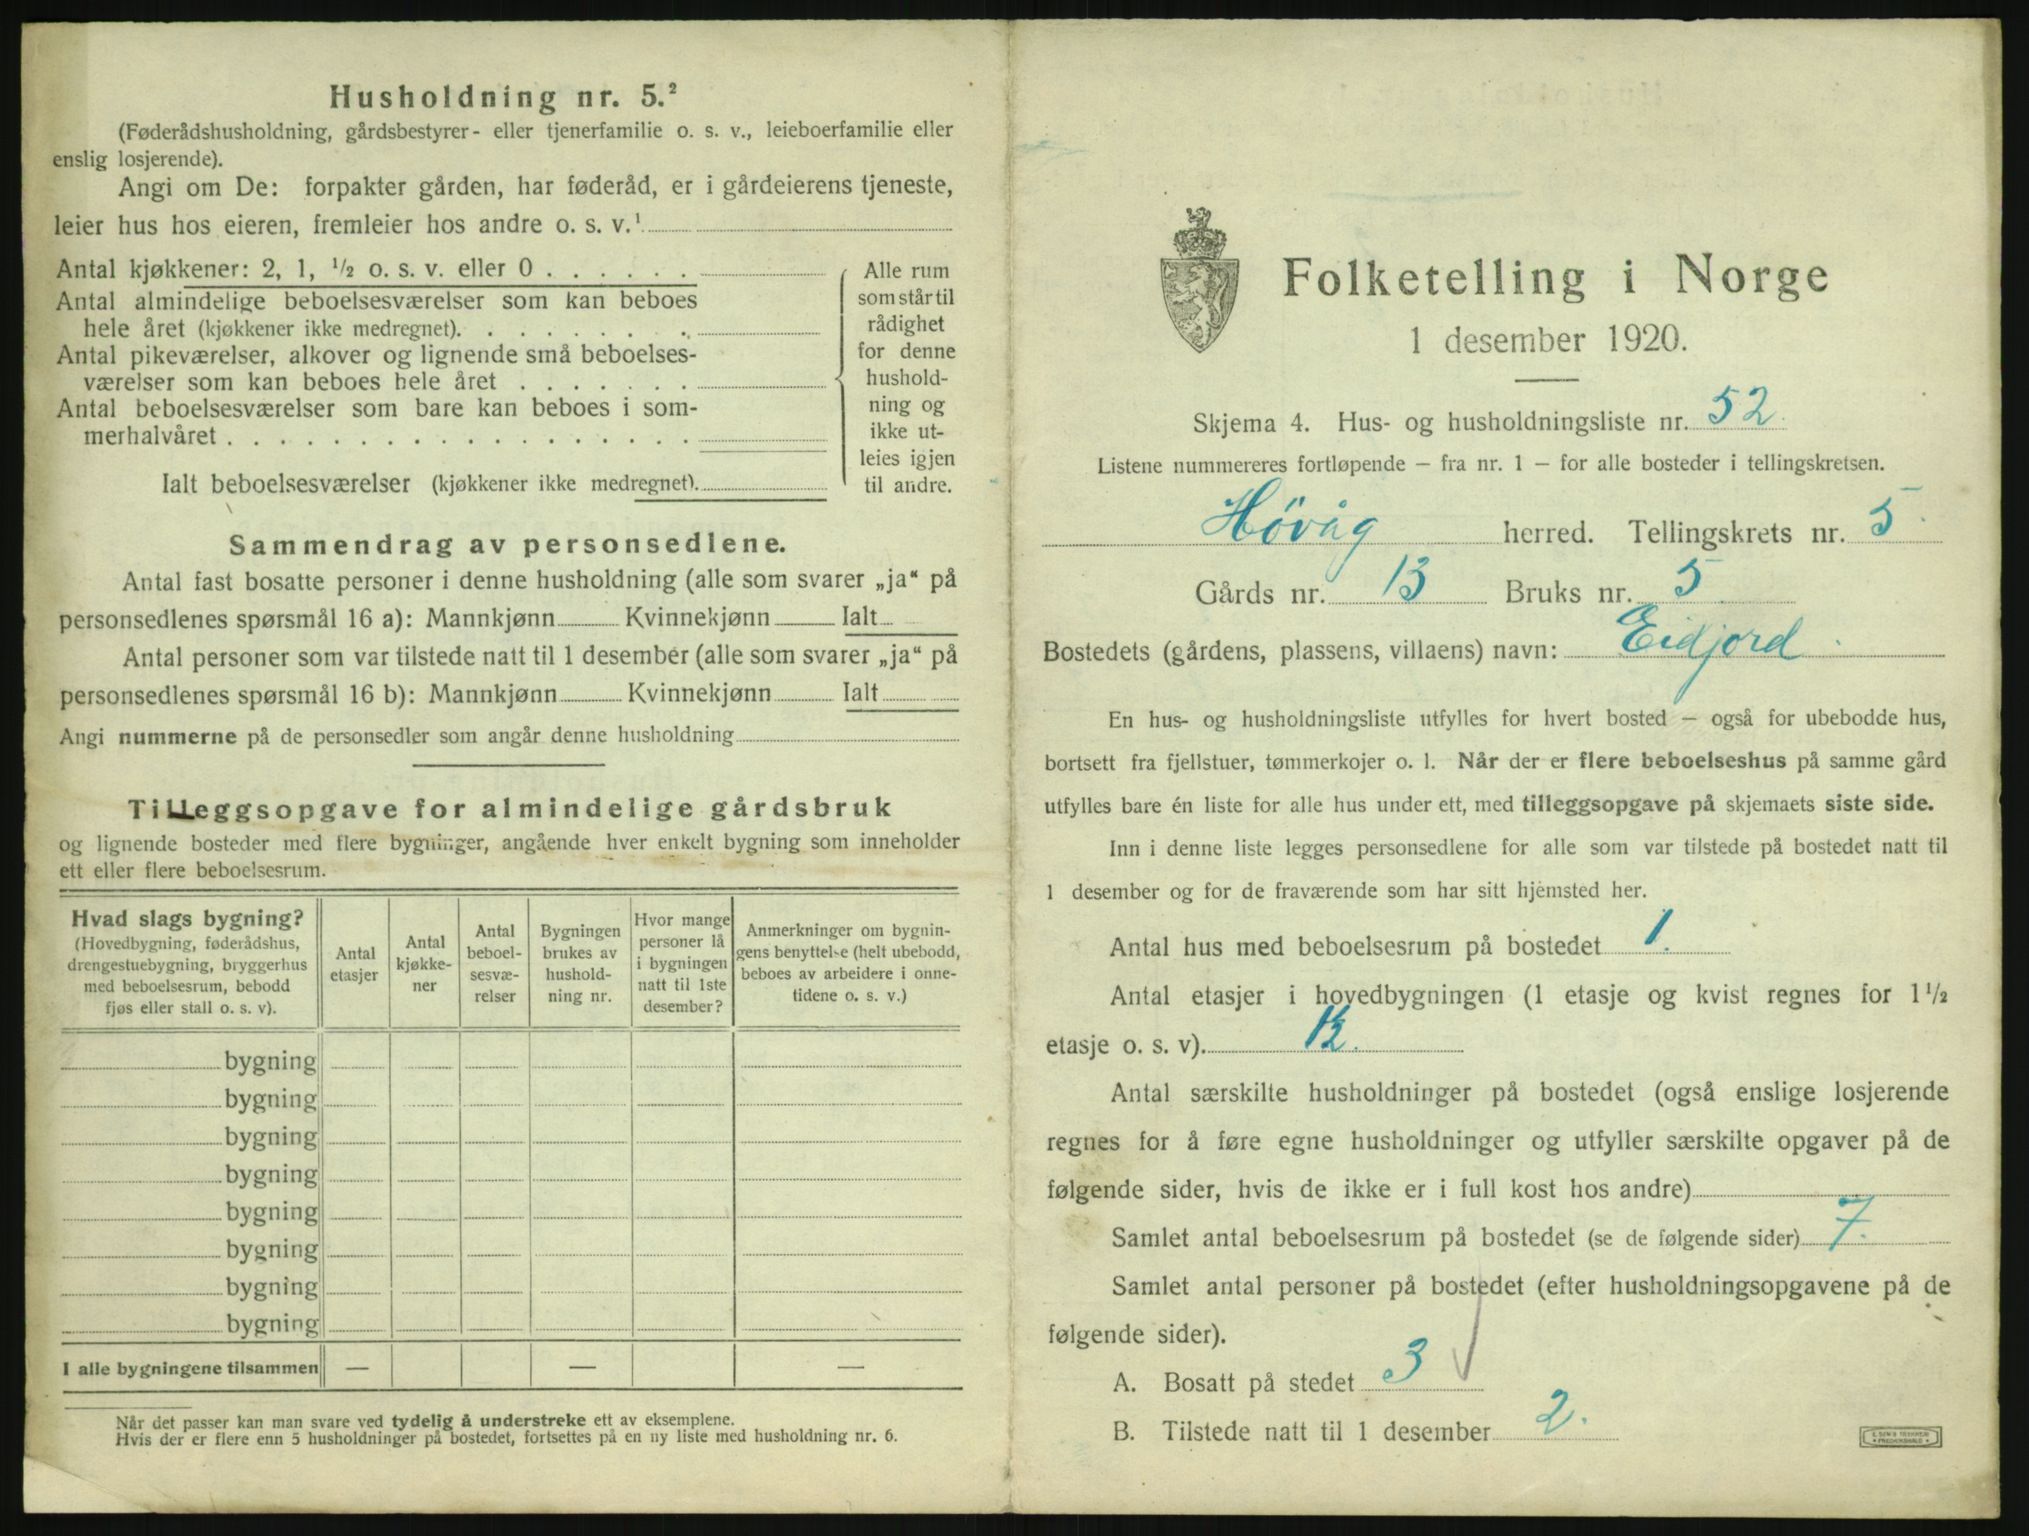 Husholdning nr. 5.²
(Føderådshusholdning, gårdsbestyrer- eller tjenerfamilie o. s. v., leieboerfamilie eller
enslig losjerende).
Angi om De: forpakter gården, har føderåd, er i gårdeierens tjeneste,
leier hus hos eieren, fremleier hos andre o. s. v.¹
Antal kjøkkener: 2, 1, ½ o. s. v. eller 0 . . . . . .
Antal almindelige beboelsesværelser som kan beboes
hele året (kjøkkener ikke medregnet). . . . . . . . .
Antal pikeværelser, alkover og lignende små beboelses-
værelser som kan beboes hele året . . . . . . .
Antal beboelsesværelser som bare kan beboes i som-
merhalvåret . . . . . . . . . . . . . . . . . .
Ialt beboelsesværelser (kjøkkener ikke medregnet).
Alle rum
som står til
rådighet
for denne
hushold-
ning og
ikke ut-
leies igjen
til andre.
Sammendrag av personsedlene.
Antal fast bosatte personer i denne husholdning (alle som svarer „ja“ på
personsedlenes spørsmål 16 a): Mannkjønn Kvinnekjønn Ialt
Antal personer som var tilstede natt til 1 desember (alle som svarer „ja“ på
personsedlenes spørsmål 16 b): Mannkjønn Kvinnekjønn Ialt
Angi nummerne på de personsedler som angår denne husholdning
Tilleggsopgave for almindelige gårdsbruk
og lignende bosteder med flere bygninger, angående hver enkelt bygning som inneholder
ett eller flere beboelsesrum.
Hvad slags bygning?
(Hovedbygning, føderådshus,
drengestuebygning, bryggerhus
med beboelsesrum, bebodd
fjøs eller stall o. s. v).
Antal
etasjer
Antal
kjøkke-
ner
Antal
beboel-
sesvæ-
relser
Bygningen
brukes av
hushold-
ning nr.
Hvor mange
personer lå
i bygningen
natt til 1ste
desember?
Anmerkninger om bygnin-
gens benyttelse (helt ubebodd,
beboes av arbeidere i onne-
tidene o. s. v.)
bygning
bygning
bygning
bygning
bygning
bygning
bygning
bygning
I alle bygningene tilsammen — — —
Når det passer kan man svare ved tydelig å understreke ett av eksemplene.
Hvis der er flere enn 5 husholdninger på bostedet, fortsettes på en ny liste med husholdning nr. 6.
Folketelling i Norge
1 desember 1920.
Skjema 4. Hus- og husholdningsliste nr. 52
Listene nummereres fortløpende – fra nr. 1 – for alle bosteder i tellingskretsen.
Høvåg herred. Tellingskrets nr. 5
Gårds nr. 13 Bruks nr. 5
Bostedets (gårdens, plassens, villaens) navn: Eidjord
En hus- og husholdningsliste utfylles for hvert bosted – også for ubebodde hus,
bortsett fra fjellstuer, tømmerkojer o. l. Når der er flere beboelseshus på samme gård
utfylles bare én liste for alle hus under ett, med tilleggsopgave på skjemaets siste side.
Inn i denne liste legges personsedlene for alle som var tilstede på bostedet natt til
1 desember og for de fraværende som har sitt hjemsted her.
Antal hus med beboelsesrum på bostedet 1.
Antal etasjer i hovedbygningen (1 etasje og kvist regnes for 1½
etasje o. s. v). 1½.
Antal særskilte husholdninger på bostedet (også enslige losjerende
regnes for å føre egne husholdninger og utfyller særskilte opgaver på de
følgende sider, hvis de ikke er i full kost hos andre)
Samlet antal beboelsesrum på bostedet (se de følgende sider) 7.
Samlet antal personer på bostedet (efter husholdningsopgavene på de
følgende sider).
A. Bosatt på stedet 3
B. Tilstede natt til 1 desember 2.